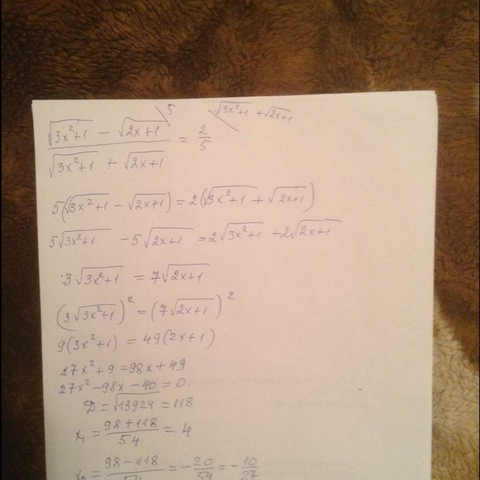 (√(3x²+1) − √(2x+1)) / (√(3x²+1) + √(2x+1)) = 2/5 \5 \√(3x²+1) + √(2x+1)
5(√(3x²+1) − √(2x+1)) = 2(√(3x²+1) + √(2x+1))
5√(3x²+1) − 5√(2x+1) = 2√(3x²+1) + 2√(2x+1)
3√(3x²+1) = 7√(2x+1)
(3√(3x²+1))² = (7√(2x+1))²
9(3x²+1) = 49(2x+1)
27x²+9 = 98x+49
27x²−98x−40 = 0.
D = √13924 = 118
x₁ = (98+118)/54 = 4
x₂ = (98−118)/54 = −20/54 = −10/27